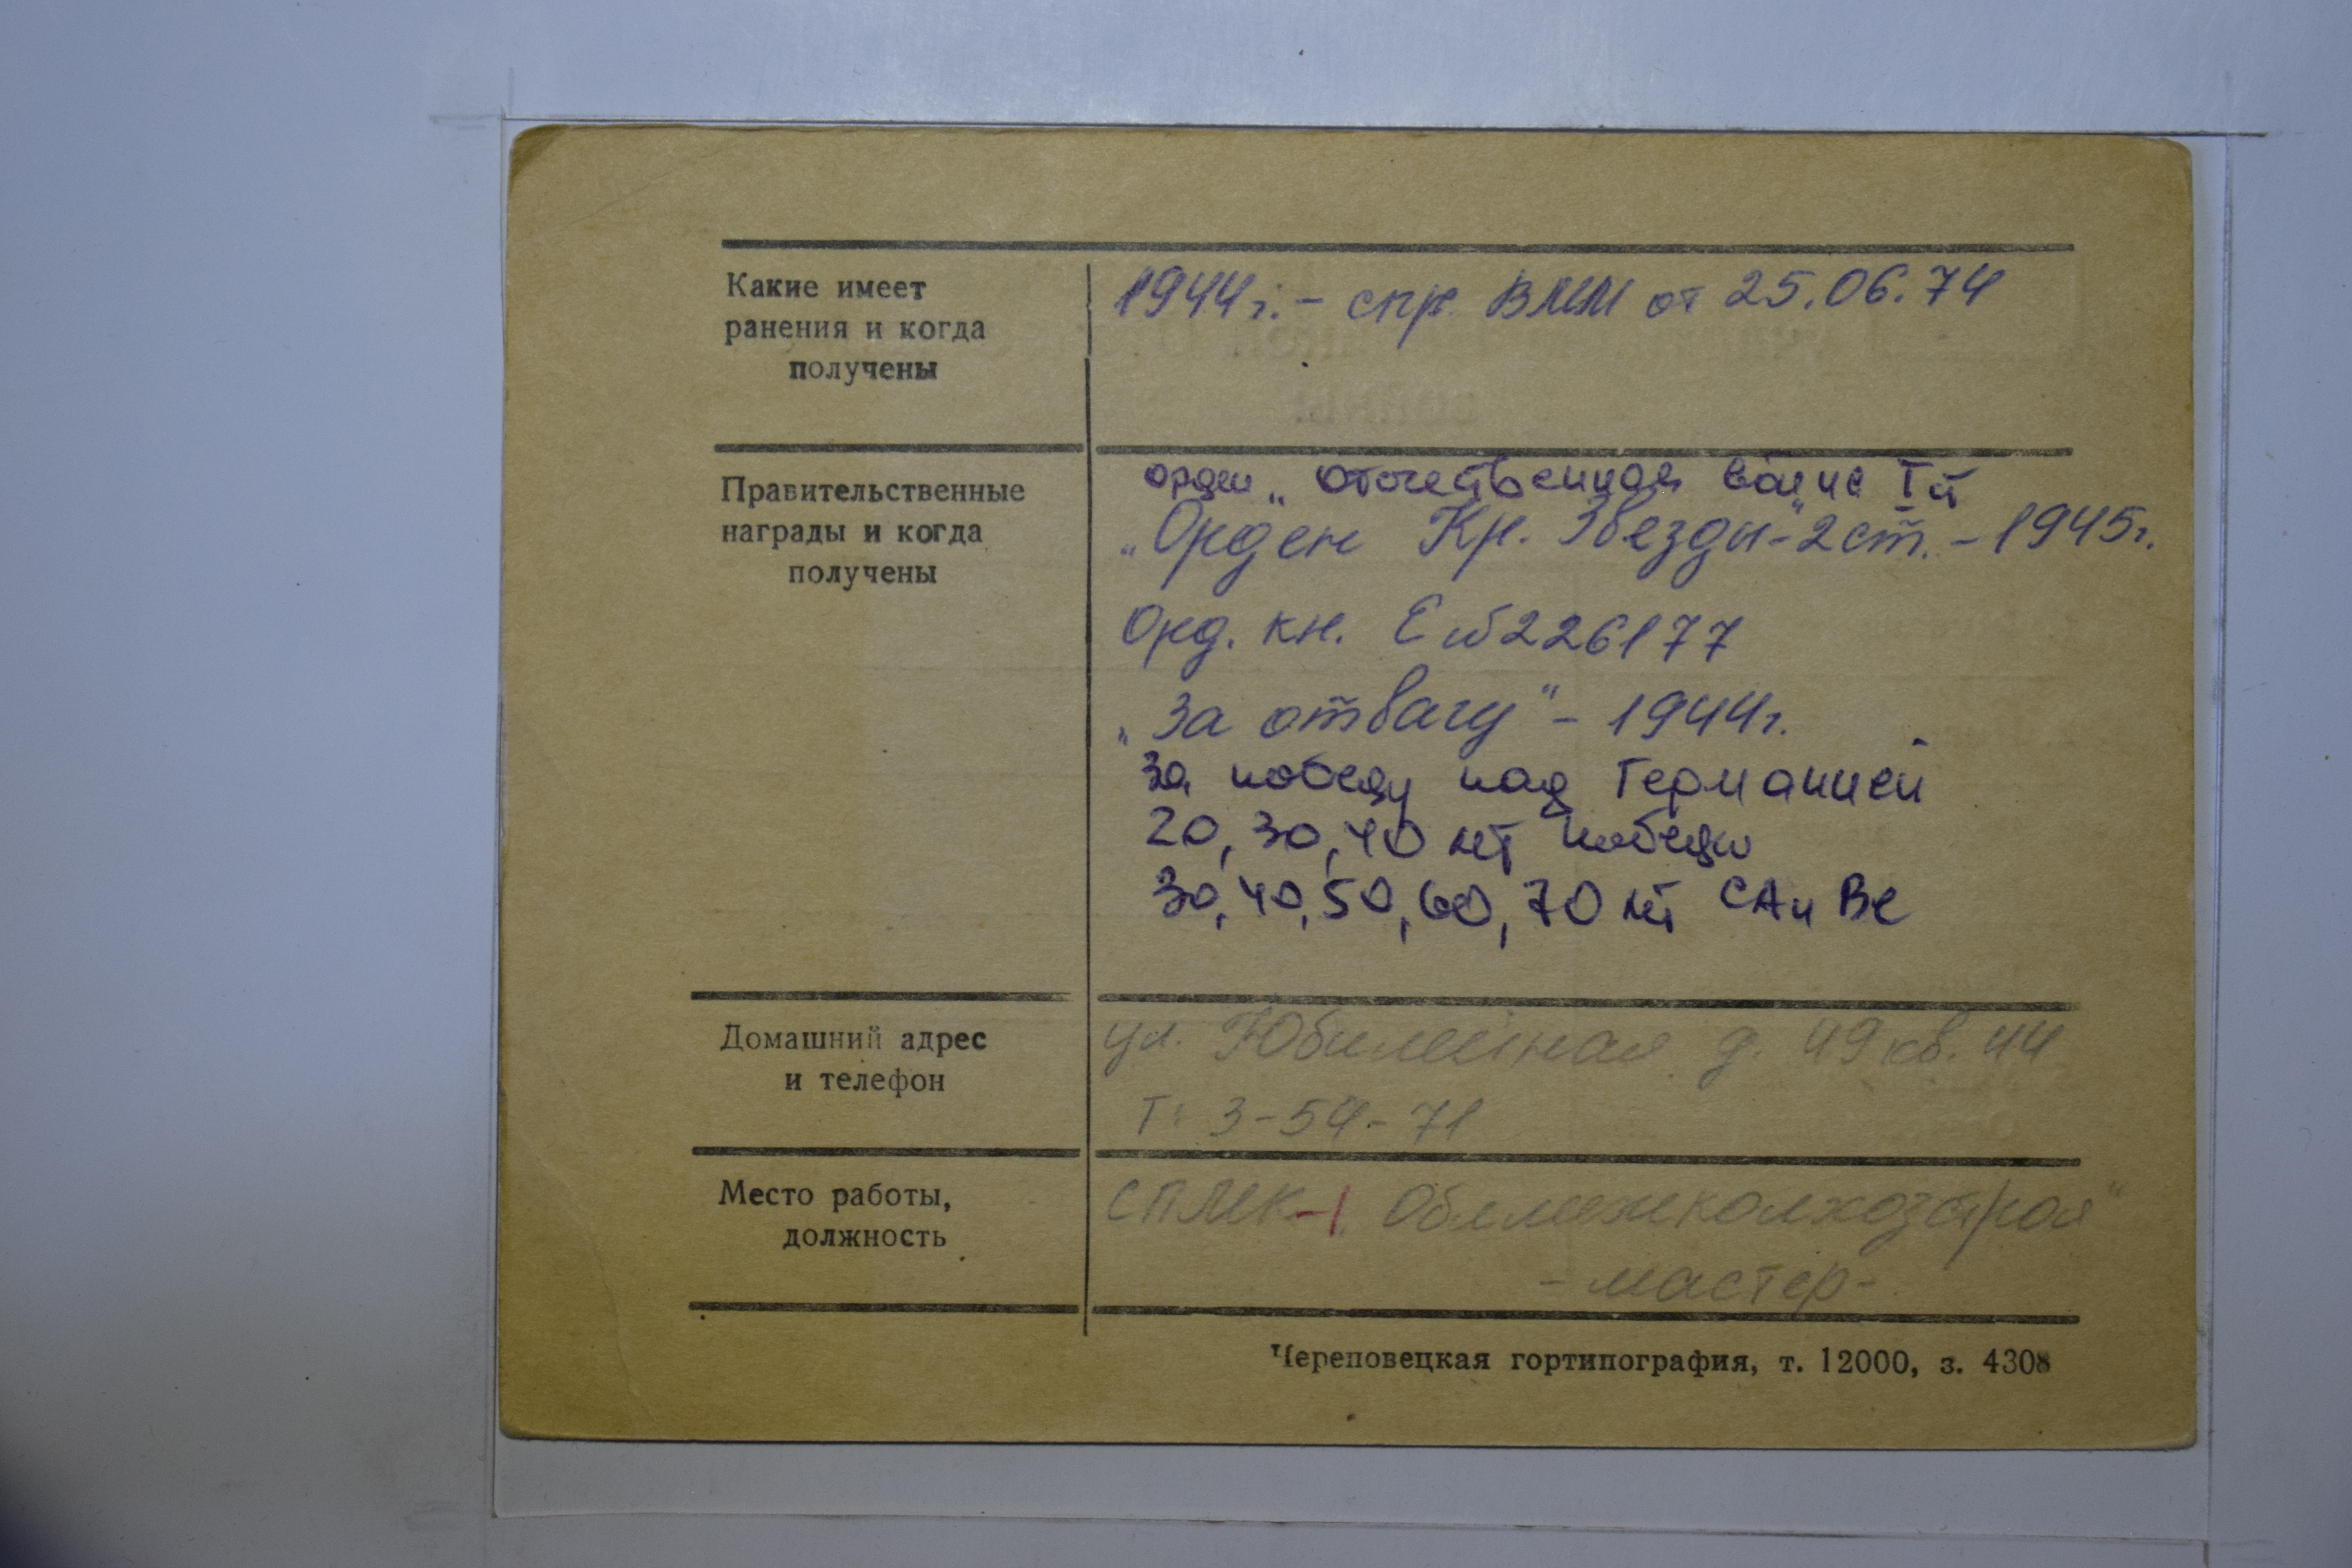 Какие имеет
ранения и когда
получены
1944г. - спр. ВММ от 25.06.74
Правительственные
награды и когда
получены
орден „ Отечественная война I й
„Орден Кр. Звезды"-2 ст. - 1945г.
Орд. кн. Е №226177
„За отвагу" - 1944г.
За победу над Германией
20, 30, 40 лет победы
30, 40, 50, 60, 70 лет СА и ВС
Домашний адрес
и телефон
ул. Юбилейная д. 49 кв. 44
Т: 3-54-71
Место работы,
должность
СПМК-1. Облмежколхозстроя"
- мастер -
Череповецкая гортипография, т. 12000, з. 4308